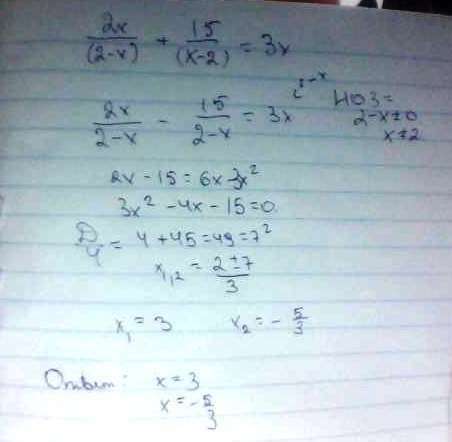 2x/(2-x) + 15/(x-2) = 3x
2x/2-x - 15/2-x = 3x
НОЗ=
2-x≠0
x≠2
2x-15=6x-3x²
3x²-4x-15=0
D/4 = 4+45=49=7²
x₁,₂ = 2±7/3
x₁=3 x₂=-5/3
Ответ: x=3
x=-5/3